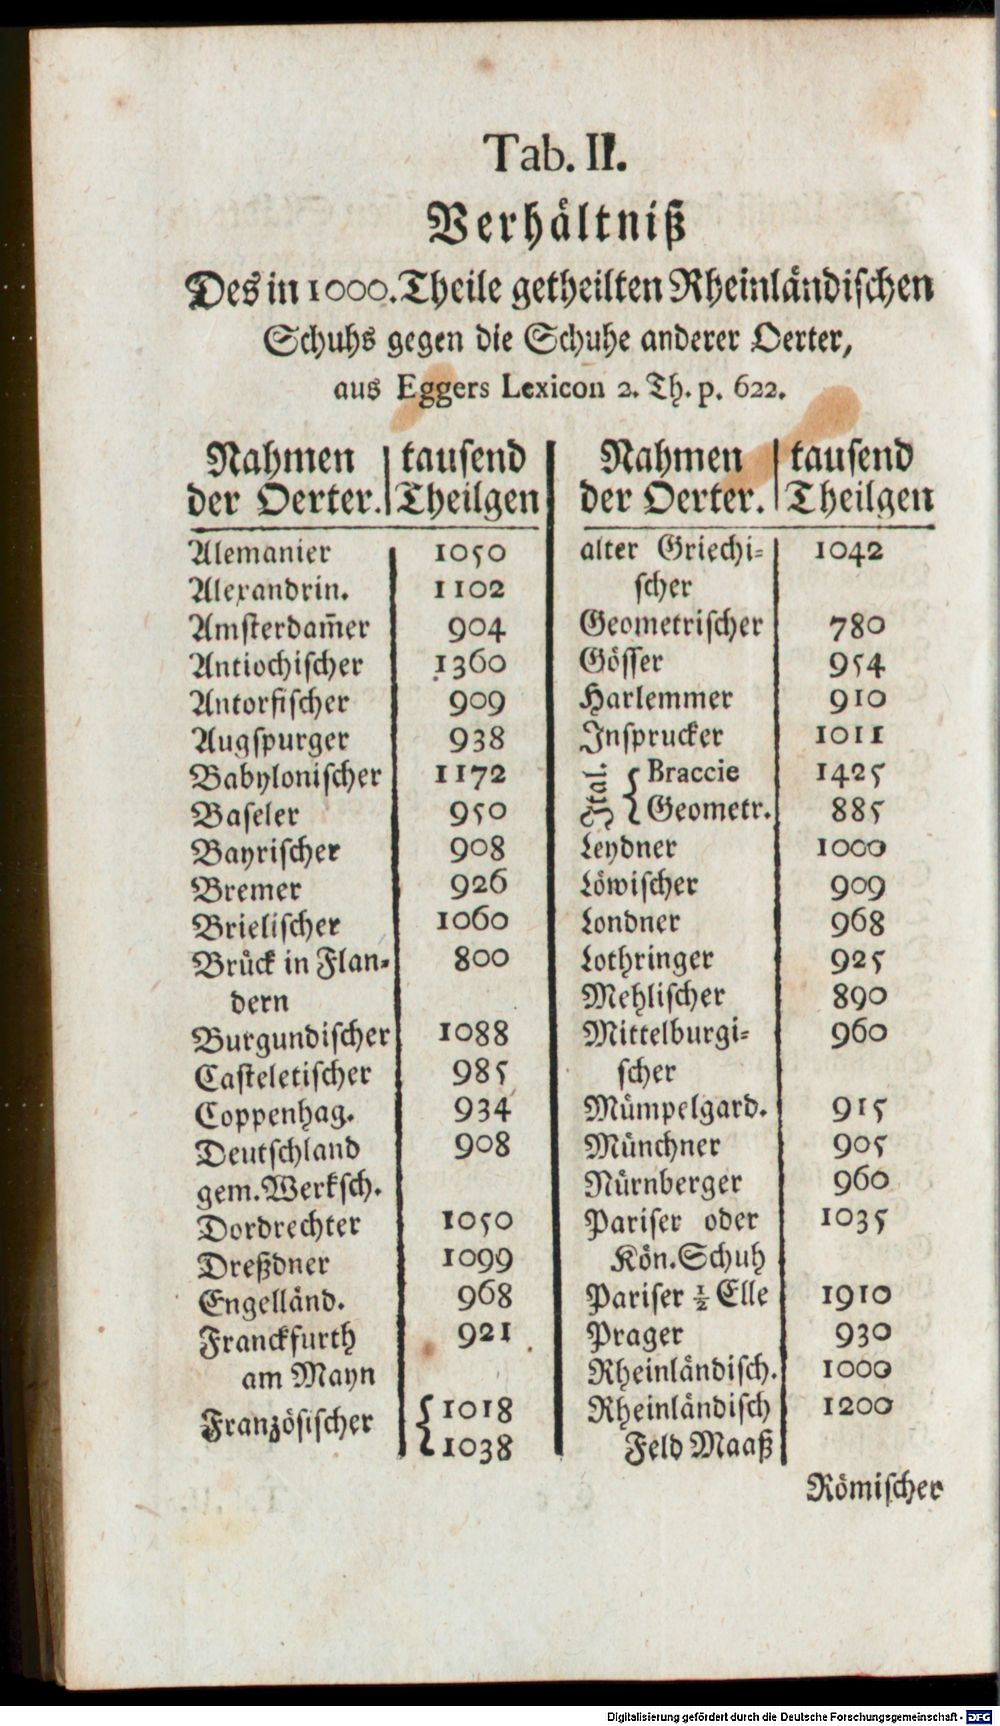 Tab. II.
Verhältniß
Des in 1000. Theile getheilten Rheinländischen
Schuhs gegen die Schuhe anderer Oerter,
aus Eggers Lexicon 2. Th. p. 622.
Nahmen der Oerter. | tausend Theilgen
Alemanier 1050
Alexandrin. 1102
Amsterdam̄er 904
Antiochischer 1360
Antorfischer 909
Augspurger 938
Babylonischer 1172
Baseler 950
Bayrischer 908
Bremer 926
Brielischer 1060
Brück in Flan- 800
dern
Burgundischer 1088
Casteletischer 985
Coppenhag. 934
Deutschland 908
gem. Werksch.
Dordrechter 1050
Dreßdner 1099
Engelländ. 968
Franckfurth 921
am Mayn
Französischer { 1018
1038
Nahmen der Oerter. | tausend Theilgen
alter Griechi- 1042
scher
Geometrischer 780
Gösser 954
Harlemmer 910
Insprucker 1011
Ital. { Braccie 1425
Geometr. 885
Leydner 1000
Löwischer 909
Londner 968
Lothringer 925
Mehlischer 890
Mittelburgi- 960
scher
Mümpelgard. 915
Münchner 905
Nürnberger 960
Pariser oder 1035
Kön. Schuh
Pariser ½ Elle 1910
Prager 930
Rheinländisch. 1000
Rheinländisch 1200
Feld Maaß
Römischer
Digitalisierung gefördert durch die Deutsche Forschungsgemeinschaft - DFG